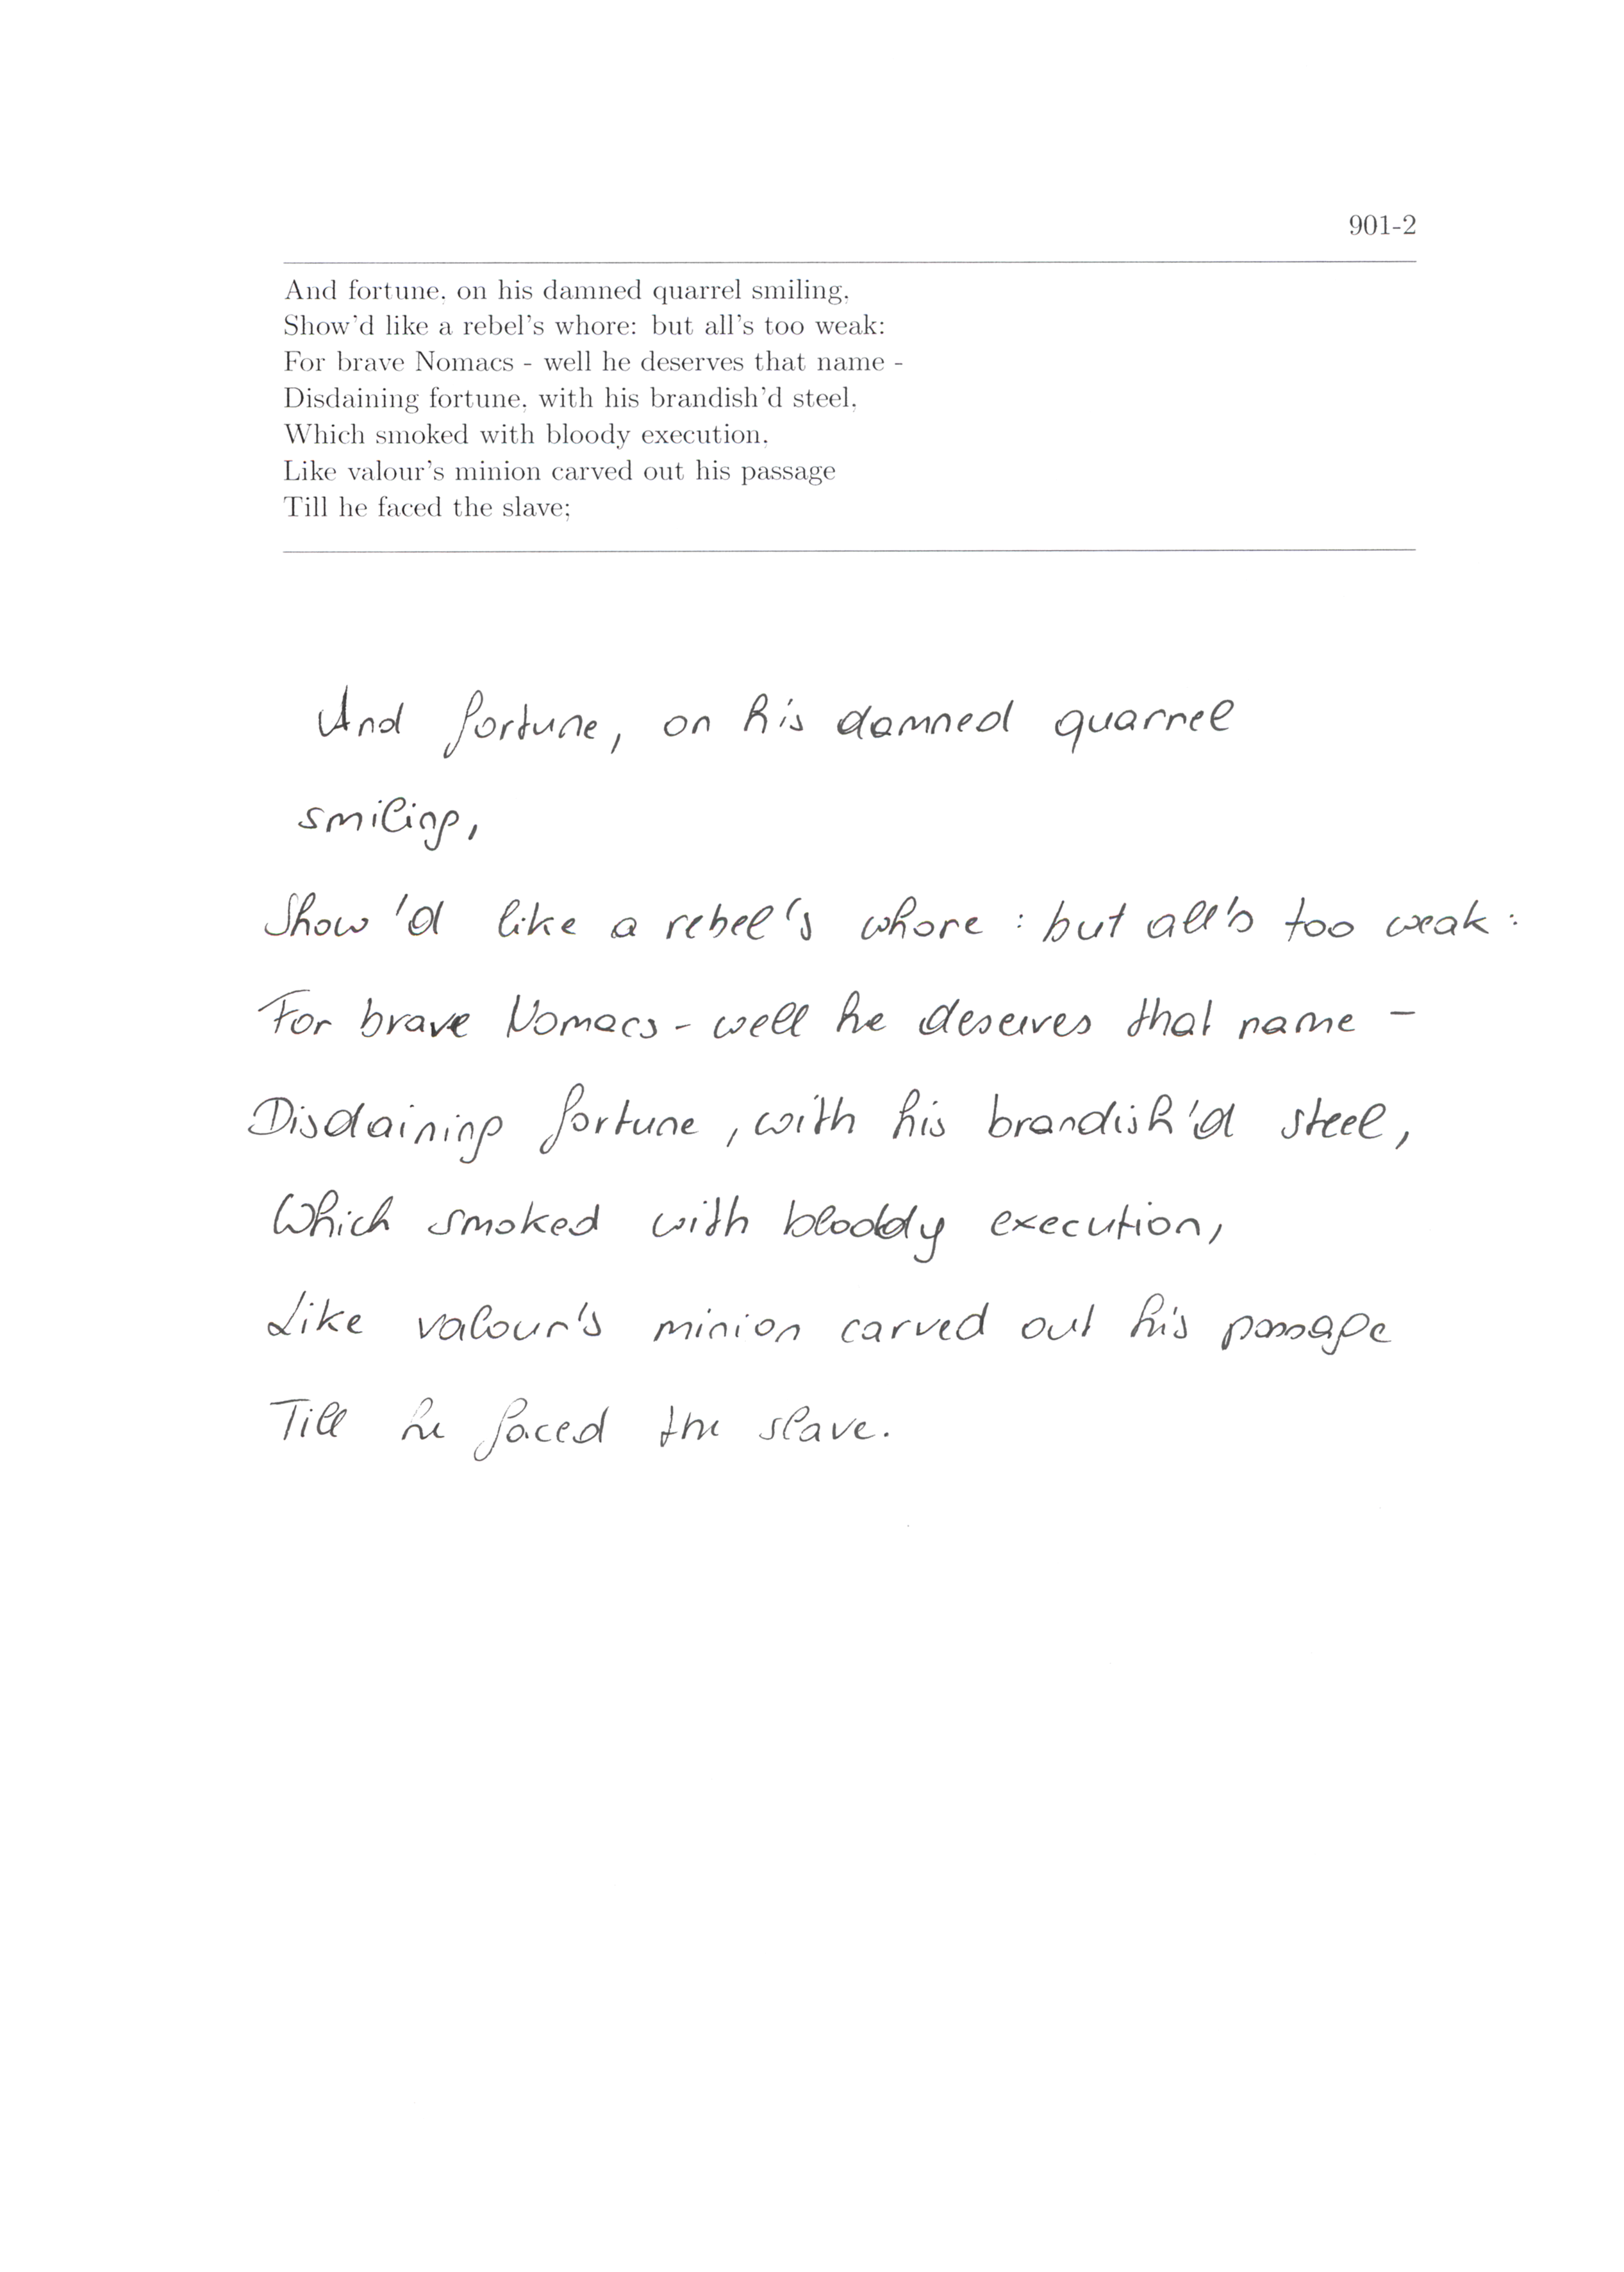 901-2
And fortune, on his damned quarrel smiling,
Show'd like a rebel's whore: but all's too weak:
For brave Nomacs - well he deserves that name -
Disdaining fortune, with his brandish'd steel,
Which smoked with bloody execution,
Like valour's minion carved out his passage
Till he faced the slave;
And fortune, on his damned quarrel
smiling,
Show'd like a rebel's whore: but all's too weak:
For brave Nomacs - well he deserves that name -
Disdaining fortune, with his brandish'd steel,
Which smoked with bloddy execution,
Like valour's minion carved out his passage
Till he faced the slave.